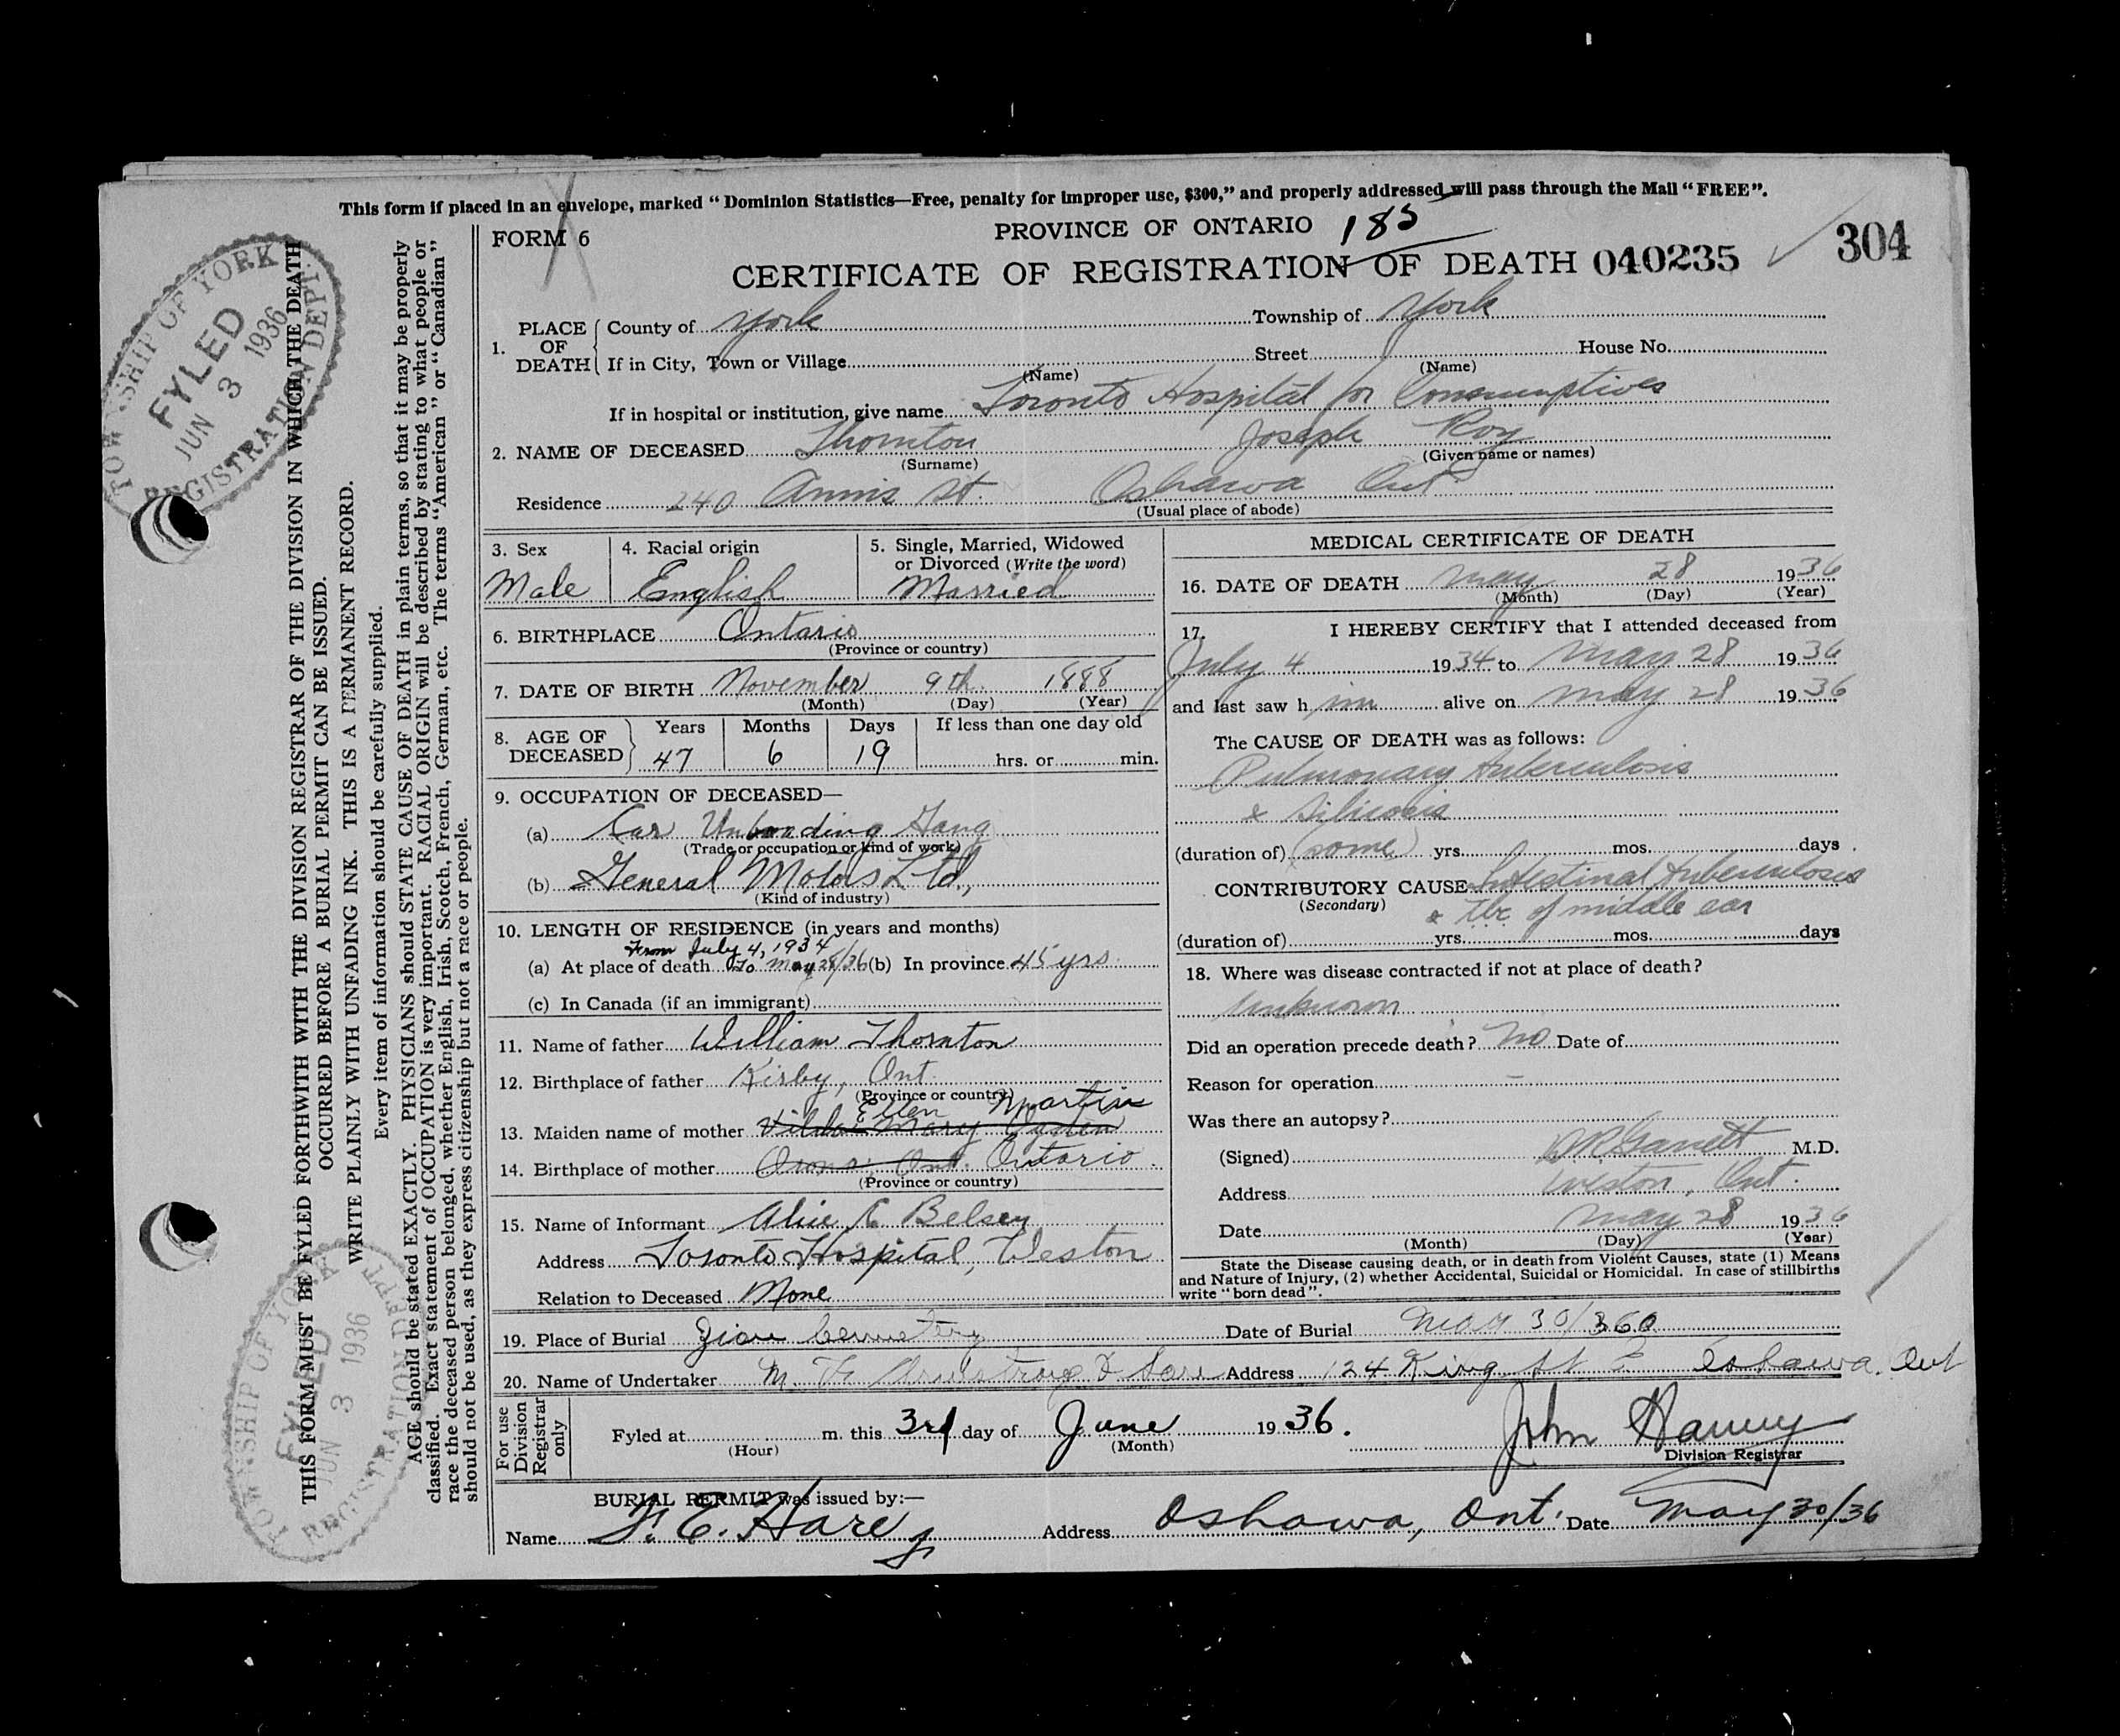 This form if placed in an envelope, marked "Dominion Statistics—Free, penalty for improper use, $300," and properly addressed will pass through the Mail "FREE".
FORM 6
PROVINCE OF ONTARIO 185
CERTIFICATE OF REGISTRATION OF DEATH 040235 304
1. PLACE OF DEATH County of York Township of York
If in City, Town or Village Street House No.
(Name) (Name)
If in hospital or institution, give name Toronto Hospital for Consumptives
2. NAME OF DECEASED Thornton Joseph Roy
(Surname) (Given name or names)
Residence 240 Annis St. Oshawa Ont
(Usual place of abode)
3. Sex 4. Racial origin 5. Single, Married, Widowed
or Divorced (Write the word)
Male English Married
6. BIRTHPLACE Ontario
(Province or country)
7. DATE OF BIRTH November 9th 1888
(Month) (Day) (Year)
8. AGE OF DECEASED Years Months Days If less than one day old
47 6 19 hrs. or min.
9. OCCUPATION OF DECEASED—
(a) Car Gang
(Trade or occupation or kind of work)
(b) General Motors Ltd.,
(Kind of industry)
10. LENGTH OF RESIDENCE (in years and months)
From July 4, 1934
(a) At place of death to May 28/36 (b) In province 45 yrs.
(c) In Canada (if an immigrant)
11. Name of father William Thornton
12. Birthplace of father Kirby, Ont.
(Province or country)
Ellen Martin
13. Maiden name of mother Mary
14. Birthplace of mother Orono, Ont. Ontario.
(Province or country)
15. Name of Informant Alice Belsey
Address Toronto Hospital, Weston
Relation to Deceased None
MEDICAL CERTIFICATE OF DEATH
16. DATE OF DEATH May 28 1936
(Month) (Day) (Year)
17. I HEREBY CERTIFY that I attended deceased from
July 4 1934 to May 28 1936
and last saw him alive on May 28 1936
The CAUSE OF DEATH was as follows:
Pulmonary tuberculosis
& Silicosis
(duration of) (some) yrs. mos. days
CONTRIBUTORY CAUSE Intestinal tuberculosis
(Secondary) & tbc of middle ear
(duration of) yrs. mos. days
18. Where was disease contracted if not at place of death?
Unknown
Did an operation precede death? No Date of
Reason for operation –
Was there an autopsy?
(Signed) M.D.
Address Weston, Ont.
Date May 28 1936
(Month) (Day) (Year)
State the Disease causing death, or in death from Violent Causes, state (1) Means
and Nature of Injury, (2) whether Accidental, Suicidal or Homicidal. In case of stillbirths
write "born dead".
19. Place of Burial Zion Cemetery Date of Burial May 30/36
20. Name of Undertaker M. Armstrong & Son Address 124 King St E Oshawa. Ont
For use Division Registrar only
Fyled at m. this 3rd day of June 1936.
(Hour) (Month)
John
Division Registrar
BURIAL PERMIT was issued by:—
Name F. E. Hare Address Oshawa, Ont. Date May 30/36
THIS FORM MUST BE FYLED FORTHWITH WITH THE DIVISION REGISTRAR OF THE DIVISION IN WHICH THE DEATH
OCCURRED BEFORE A BURIAL PERMIT CAN BE ISSUED.
WRITE PLAINLY WITH UNFADING INK. THIS IS A PERMANENT RECORD.
Every item of information should be carefully supplied.
AGE should be stated EXACTLY. PHYSICIANS should STATE CAUSE OF DEATH in plain terms, so that it may be properly
classified. Exact statement of OCCUPATION is very important. RACIAL ORIGIN will be described by stating to what people or
race the deceased person belonged, whether English, Irish, Scotch, French, German, etc. The terms "American" or "Canadian"
should not be used, as they express citizenship but not a race or people.
TOWNSHIP OF YORK
FYLED
JUN 3 1936
REGISTRATION DEPT.
TOWNSHIP OF YORK
FYLED
JUN 3 1936
REGISTRATION DEPT.